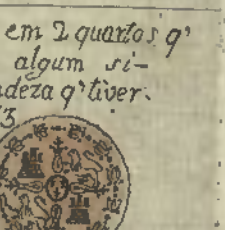 em 2 quartos q'
algum si-
ndeza q' tiver.
3